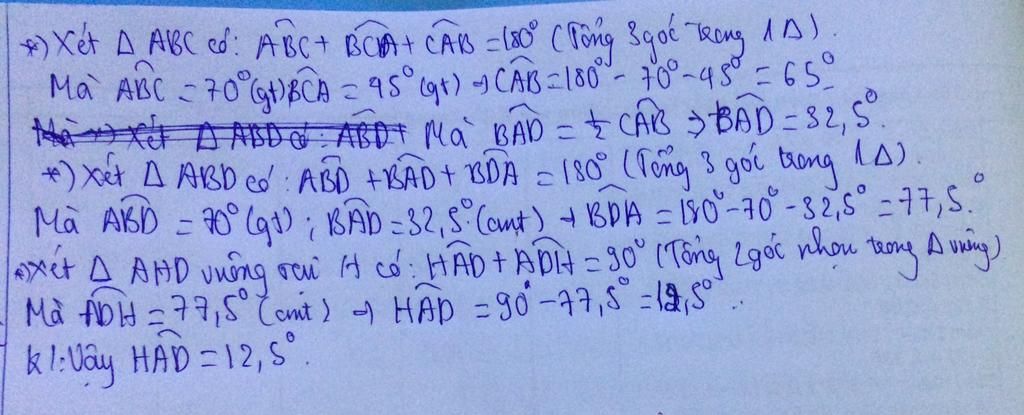 *) Xét Δ ABC có: ABC + BCA + CAB = 180° (Tổng 3 góc trong 1 Δ).
Mà ABC = 70° (gt) BCA = 45° (gt) → CAB = 180° - 70° - 45° = 65°
Mà → Xét Δ ABD có: ABD + Mà BAD = ½ CAB ⇒ BAD = 32,5°.
*) Xét Δ ABD có: ABD + BAD + BDA = 180° (Tổng 3 góc trong 1 Δ).
Mà ABD = 70° (gt); BAD = 32,5° (cmt) → BDA = 180° - 70° - 32,5° = 77,5°.
*) Xét Δ AHD vuông tại H có: HAD + ADH = 90° (Tổng 2 góc nhọn trong Δ vuông)
Mà ADH = 77,5° (cmt) → HAD = 90° - 77,5° = 12,5°.
kl: Vậy HAD = 12,5°.